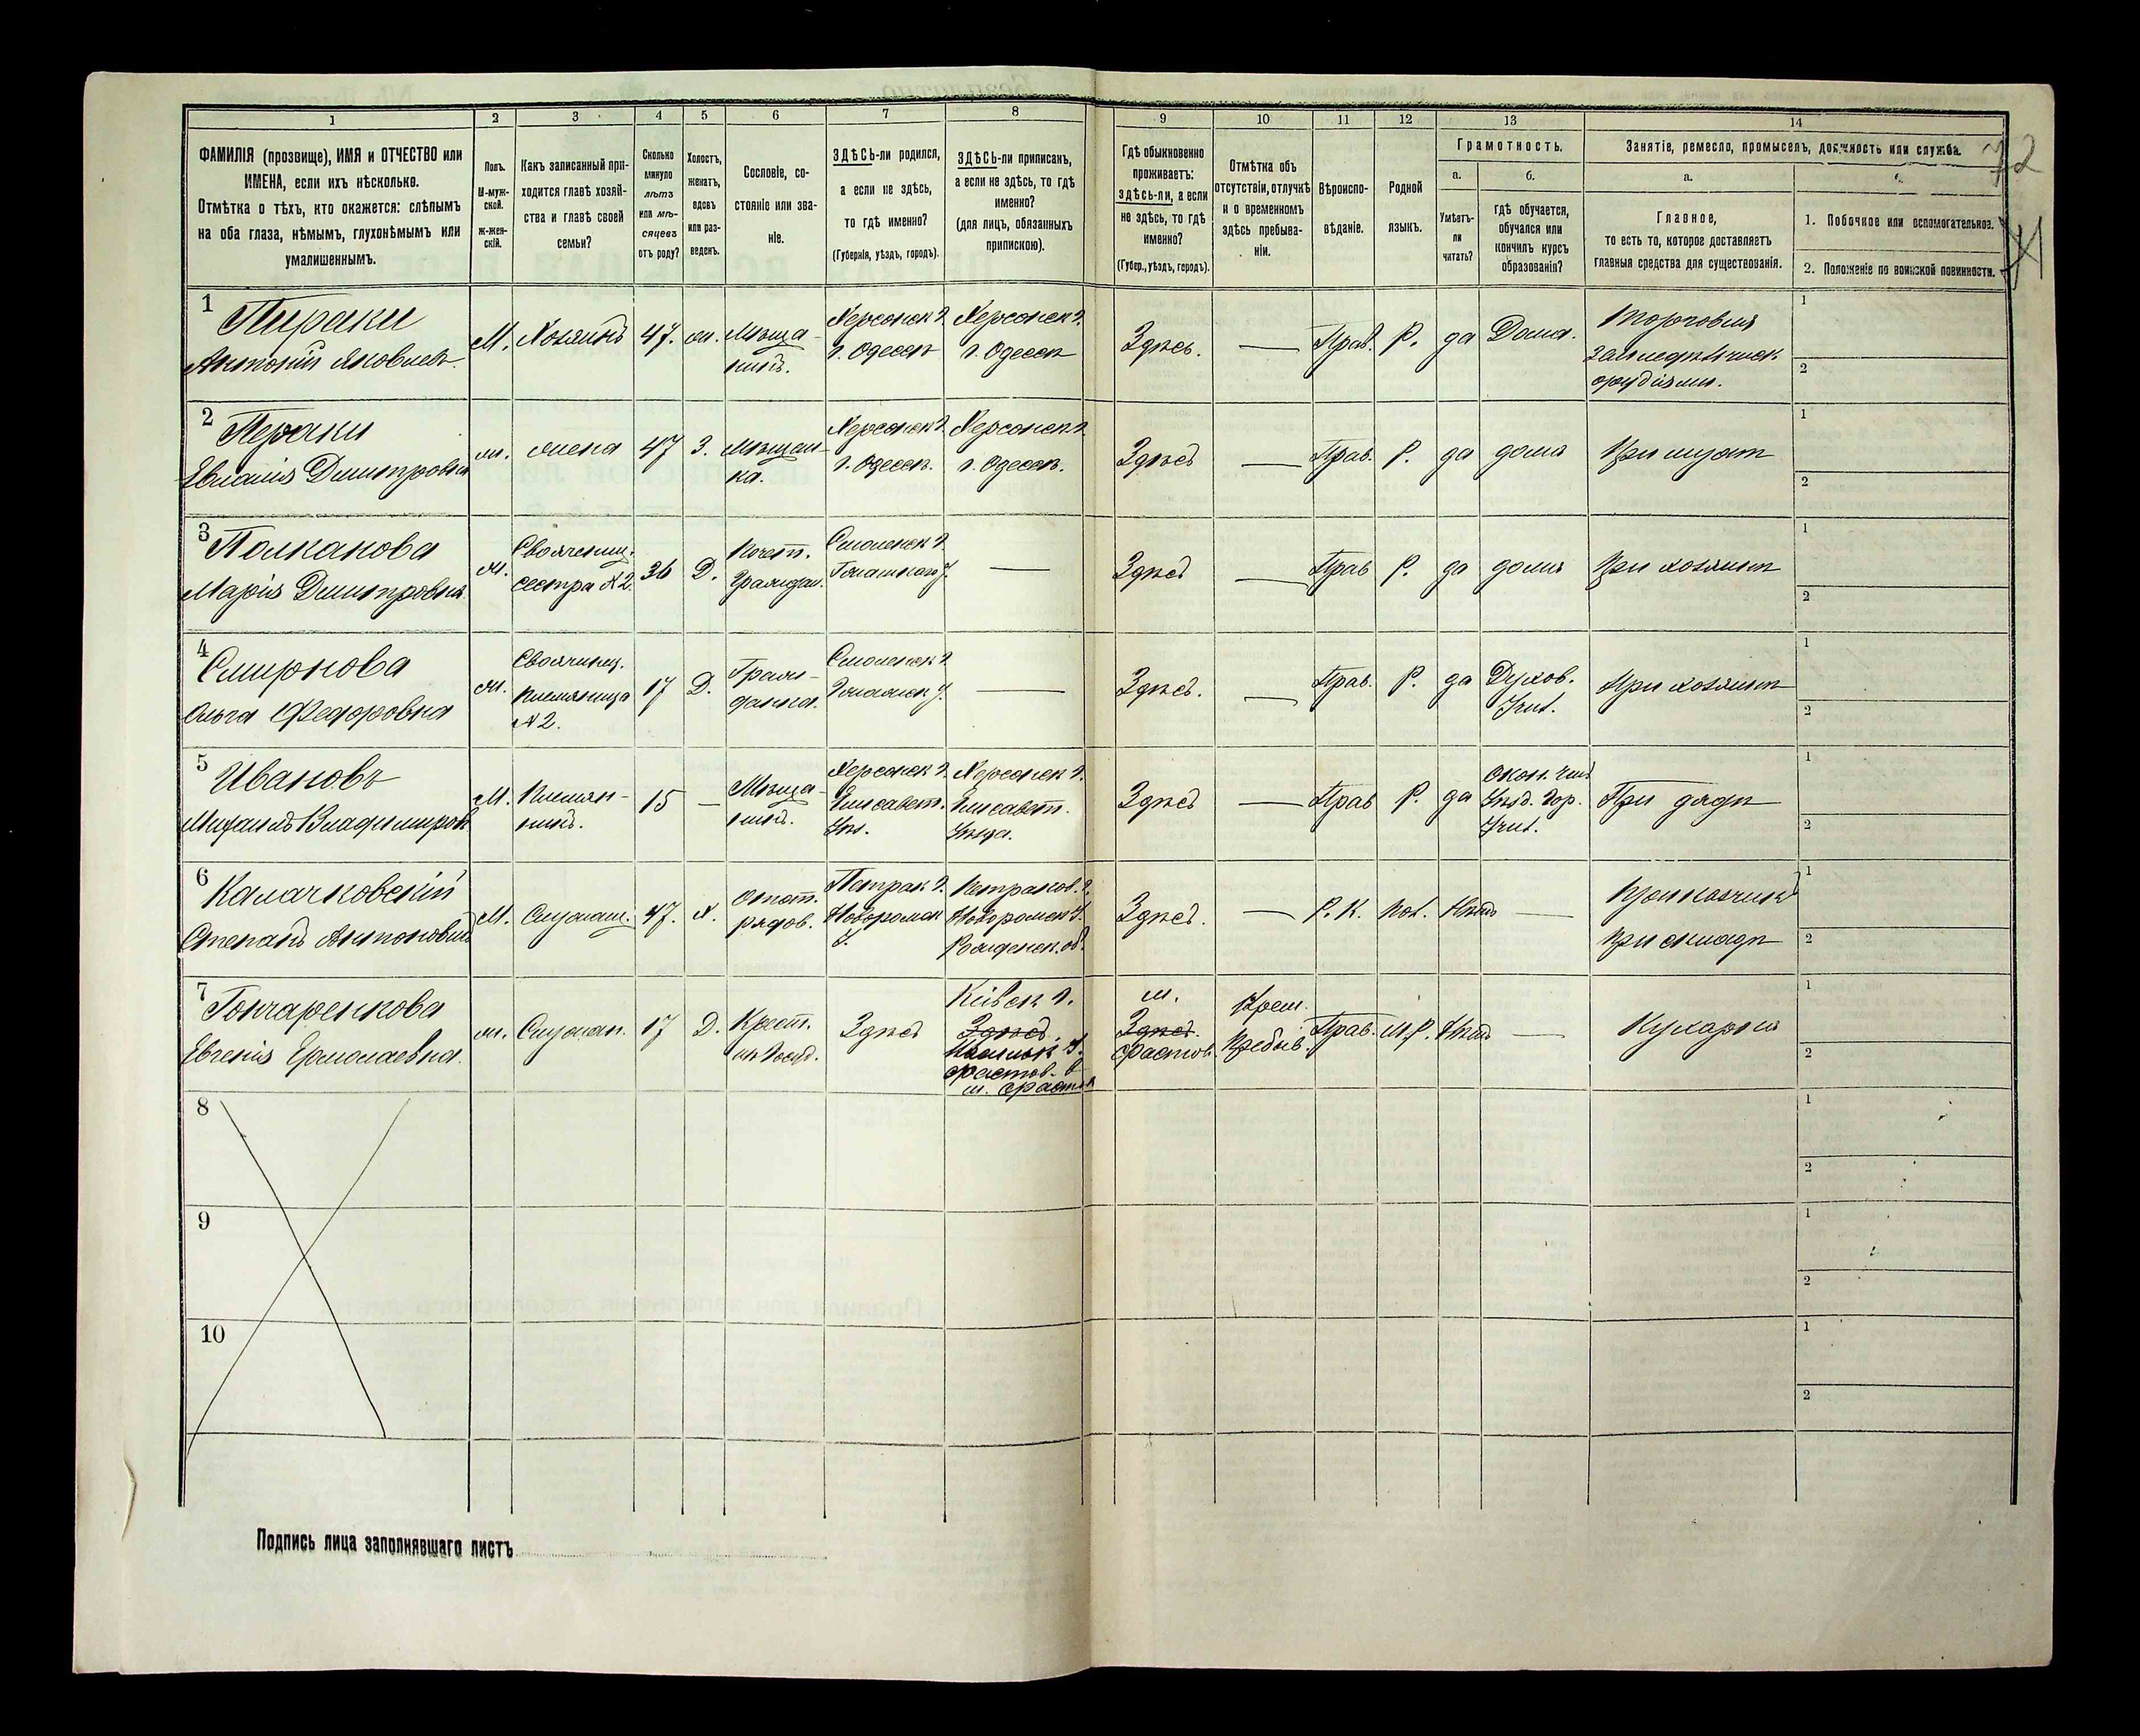 1
2
3
4
5
6
7
8
9
10
11
12
13
14
ФАМИЛІЯ (прозвище), ИМЯ и ОТЧЕСТВО или
ИМЕНА, если ихъ нѣсколько.
Отмѣтка о тѣхъ, кто окажется: слѣпымъ
на оба глаза, нѣмымъ, глухонѣмымъ или
умалишеннымъ.
Полъ.
М-муж-
ской.
Ж-жен-
скій.
Какъ записанный при-
ходится главѣ хозяй-
ства и главѣ своей
семьи?
Сколько
минуло
лѣтъ
или мѣ-
сяцевъ
отъ роду?
Холостъ,
женатъ,
вдовъ
или раз-
веденъ.
Сословіе, со-
стояніе или зва-
ніе.
ЗДѢСЬ-ли родился,
а если не здѣсь,
то гдѣ именно?
(Губернія, уѣздъ, городъ).
ЗДѢСЬ-ли приписанъ,
а если не здѣсь, то гдѣ
именно?
(для лицъ, обязанныхъ
припискою).
Гдѣ обыкновенно
проживаетъ:
здѣсь-ли, а если
не здѣсь, то гдѣ
именно?
(Губер., уѣздъ, городъ).
Отмѣтка объ
отсутствіи, отлучкѣ
и о временномъ
здѣсь пребыва-
ніи.
Вѣроиспо-
вѣданіе.
Родной
языкъ.
Грамотность.
а.
Умѣетъ-
ли
читать?
б.
гдѣ обучается,
обучался или
кончилъ курсъ
образованія?
Занятіе, ремесло, промыселъ, должность или служба.
а.
Главное,
то есть то, которое доставляетъ
главныя средства для существованія.
1. Побочное или вспомогательное.
2. Положеніе по воинской повинности.
72
1
Пираки
Антоній Яковлев.
М.
Хозяинъ
47.
Мѣща-
нинъ.
Херсонск г.
г. Одесса
Херсонск г.
г. Одесса
Здѣсь.
—
Прав.
Р.
да
Дома.
Торговля
земледѣльческ
орудіями.
1
2
2
Пераки
Евланія Димитровна
ж.
жена
47
З.
Мѣщан-
ка.
Херсонск г.
г. Одесса.
Херсонск г.
г. Одесса.
Здѣсь
—
Прав.
Р.
да
дома
При мужѣ
1
2
3
Полканова
Марія Димитровна
ж.
Свояченица.
сестра №2.
36
Д.
Почет.
Граждан.
Смоленск г.
—
Здѣсь
—
Прав
Р.
да
дома
При хозяинѣ
1
2
4
Смирнова
Ольга Федоровна
ж.
Своячениц.
племянница
№2.
17
Д.
Граж-
данка.
Смоленск г.
—
Здѣсь.
—
Прав.
Р.
да
Духов.
Учил.
При хозяинѣ
1
2
5
Ивановъ
Михаилъ Владимиров.
М.
Племян-
никъ.
15
—
Мѣща-
нинъ.
Херсонск г.
Елисавет.
Уѣз.
Херсонск г.
Елисавет.
Уѣзда.
Здѣсь
—
Прав
Р.
да
Уѣзд. Гор.
Учил.
При дядѣ
1
2
6
Калачковскій
Степанъ Антоновичъ
М.
Служащ.
47.
Х.
Отст.
рядов.
Петрак г.
Новоромск
У.
Петраков. г.
Новоромск У.
Здѣсь.
—
Р. К.
Пол.
Нѣтъ
—
Прикащикъ
При складѣ
1
2
7
Гончаренкова
Евгенія Ермолаевна.
ж.
Служан.
17
Д.
Крест.
Здѣсь
Кіевск г.
Здѣсь.
Фастов. в
м. Фастов
м.
Здѣсь.
Фастов.
Врем.
Пребыв.
Прав.
М.Р.
Нѣтъ
—
Кухарка
1
2
8
1
2
9
1
2
10
1
2
Подпись лица заполнявшаго листъ